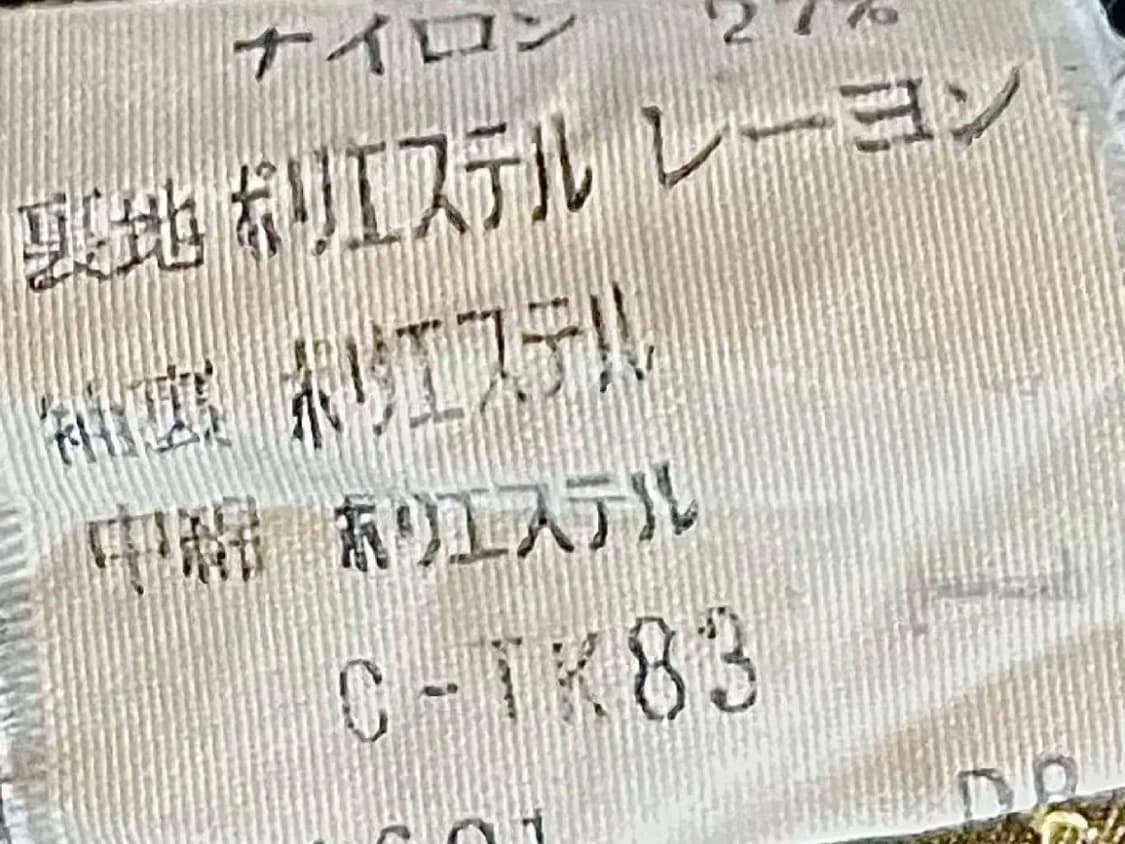 ナイロン 27%
裏地 ポリエステル レーヨン
袖裏 ポリエステル
中綿 ポリエステル
C-TK83